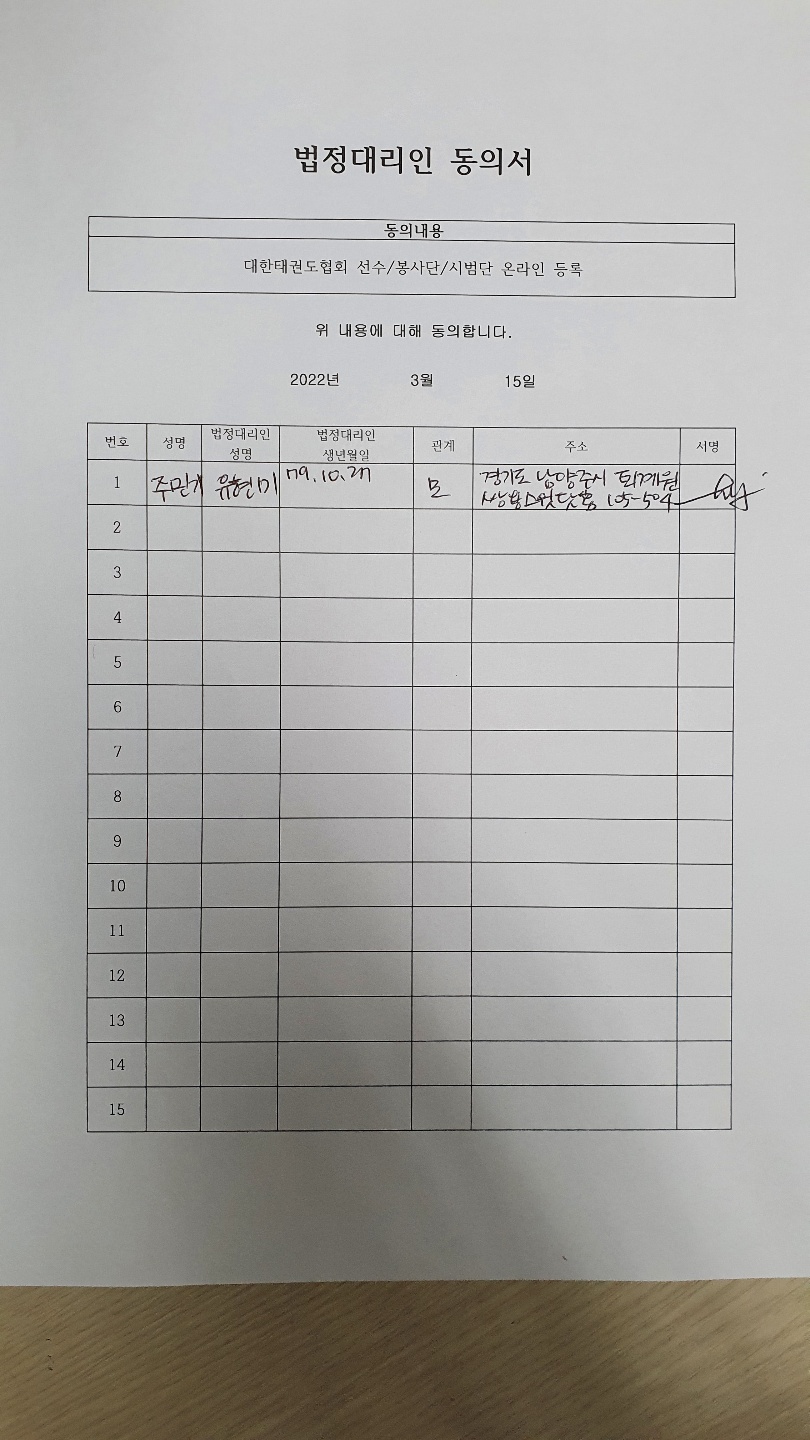 법정대리인 동의서
동의내용
대한태권도협회 선수/봉사단/시범단 온라인 등록
위 내용에 대해 동의합니다.
2022년 3월 15일
번호 성명 법정대리인 성명 법정대리인 생년월일 관계 주소 서명
1 유현미 79.10.27 모 경기도 남양주시 퇴계원
105-504
2
3
4
5
6
7
8
9
10
11
12
13
14
15